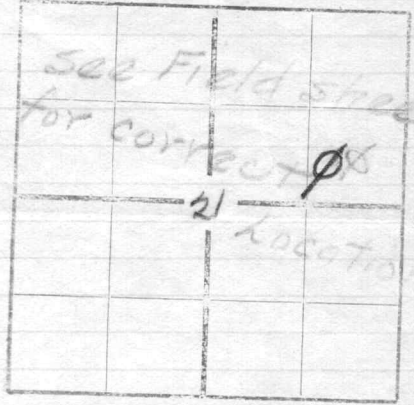 See Field shee
for correct
21
Locatio